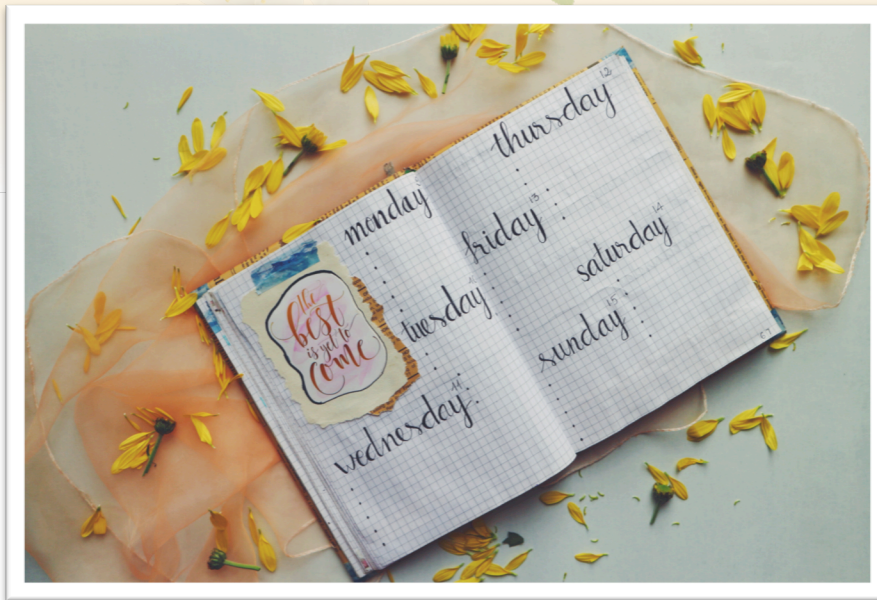 the
best
is yet to
come
monday
tuesday
wednesday 11
thursday 12
friday 13
saturday 14
sunday 15